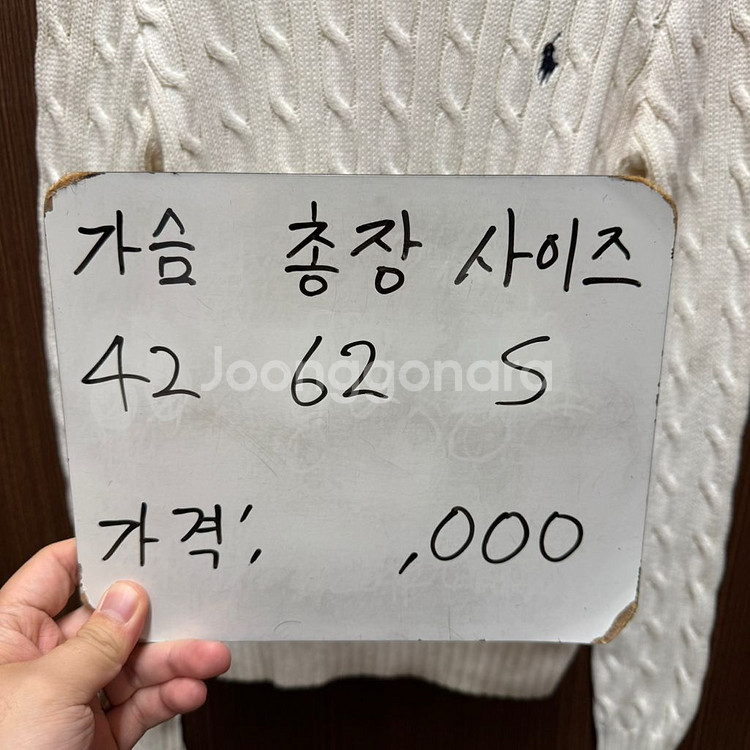 가슴 총장 사이즈
42 62 S
Joonggonara
가격; ,000